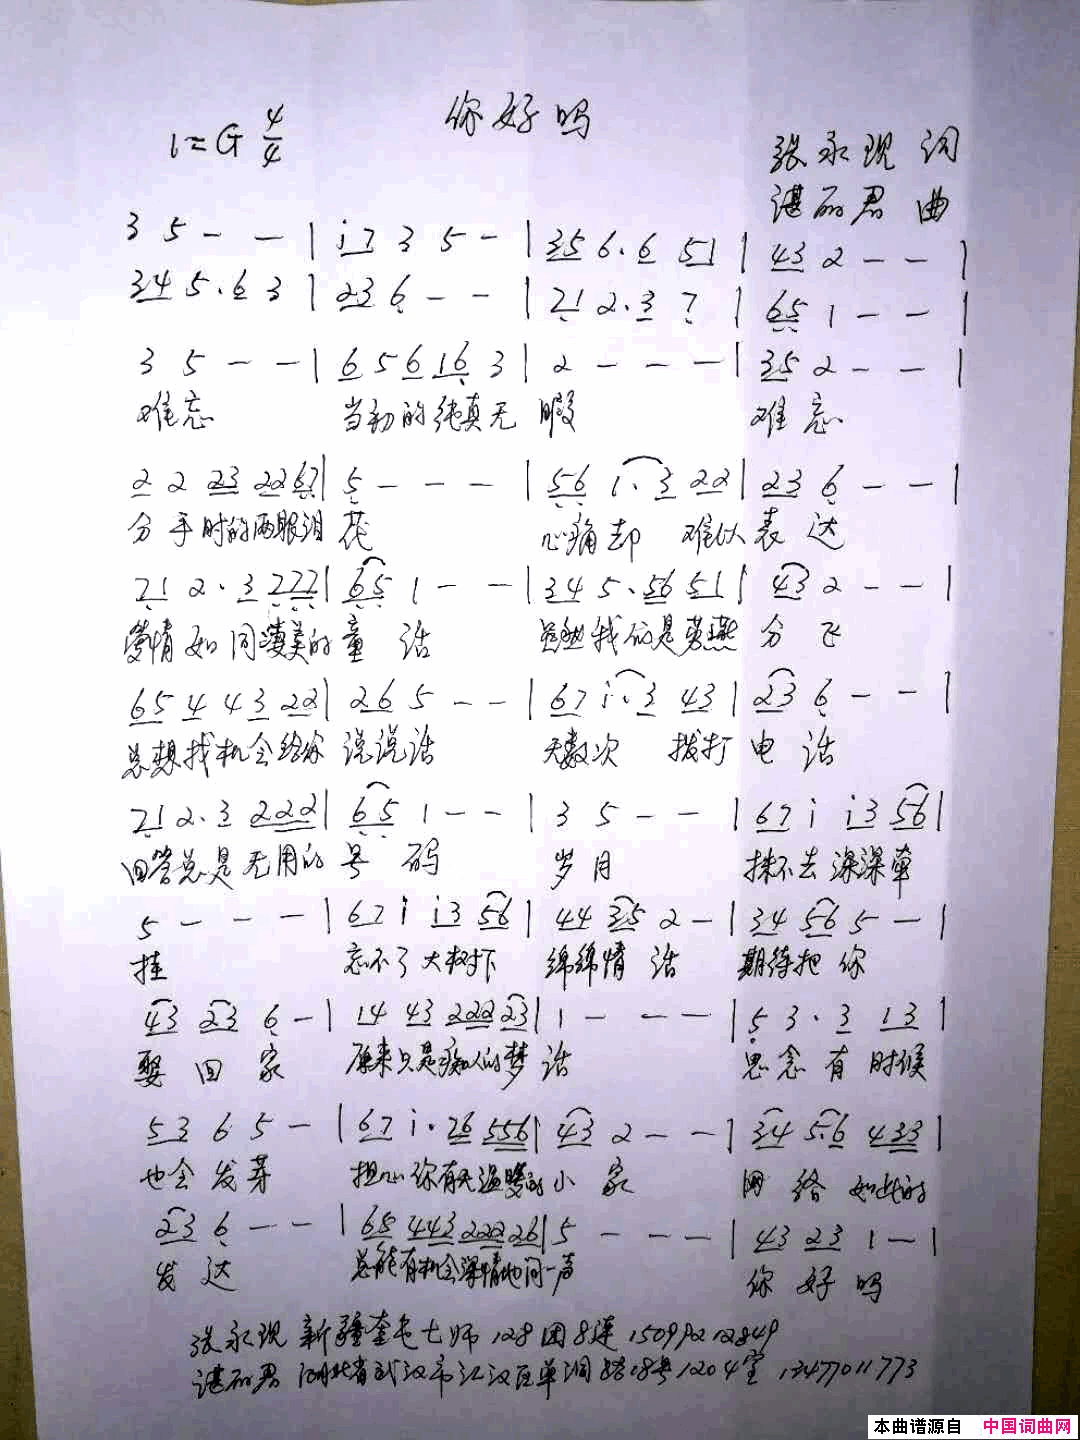 你好吗
1=G 4/4
张永现 词
谌丽君 曲
3 5 - - | i7 3 5 - | 35 6· 6 51 | 43 2 - - |
34 5· 6 3 | 23 6 - - | 21 2· 3 7 | 65 1 - - |
3 5 - - | 6 5 6 16 3 | 2 - - - | 35 2 - - |
难忘 当初的纯真无 暇 难忘
2 2 23 22 67 | 5 - - - | 56 1· 3 22 | 23 6 - - |
分手时的两眼泪 花 心痛却 难以 表 达
21 2· 3 222 | 65 1 - - | 34 5· 56 51 | 43 2 - - |
爱情如同凄美的 童 话 虽然我们是劳燕 分 飞
65 4 4 3 22 | 26 5 - - | 67 i· 3 43 | 23 6 - - |
总想找机会给你 说说话 无数次 拨打 电 话
21 2· 3 222 | 65 1 - - | 3 5 - - | 67 i i3 56 |
回答总是无用的 号 码 岁月 抹不去深深牵
5 - - - | 67 i i3 56 | 44 35 2 - | 34 56 5 - |
挂 忘不了大树下 绵绵情 话 期待把 你
43 23 6 - | 14 43 222 23 | 1 - - - | 5 3· 3 13 |
娶 回 家 原来只是痴人的梦 话 思念有时候
53 6 5 - | 67 i· 76 556 | 43 2 - - | 34 5·6 433 |
也会发芽 担心你有无温暖的 小 家 网 络 如此的
23 6 - - | 65 443 222 26 | 5 - - - | 43 23 1 - |
发 达 总能有机会深情地问一 声 你 好 吗
张永现 新疆奎屯七师128团8连 15099212849
谌丽君 湖北省武汉市江汉区单洞路18号1204室 13477011773
本曲谱源自 中国词曲网